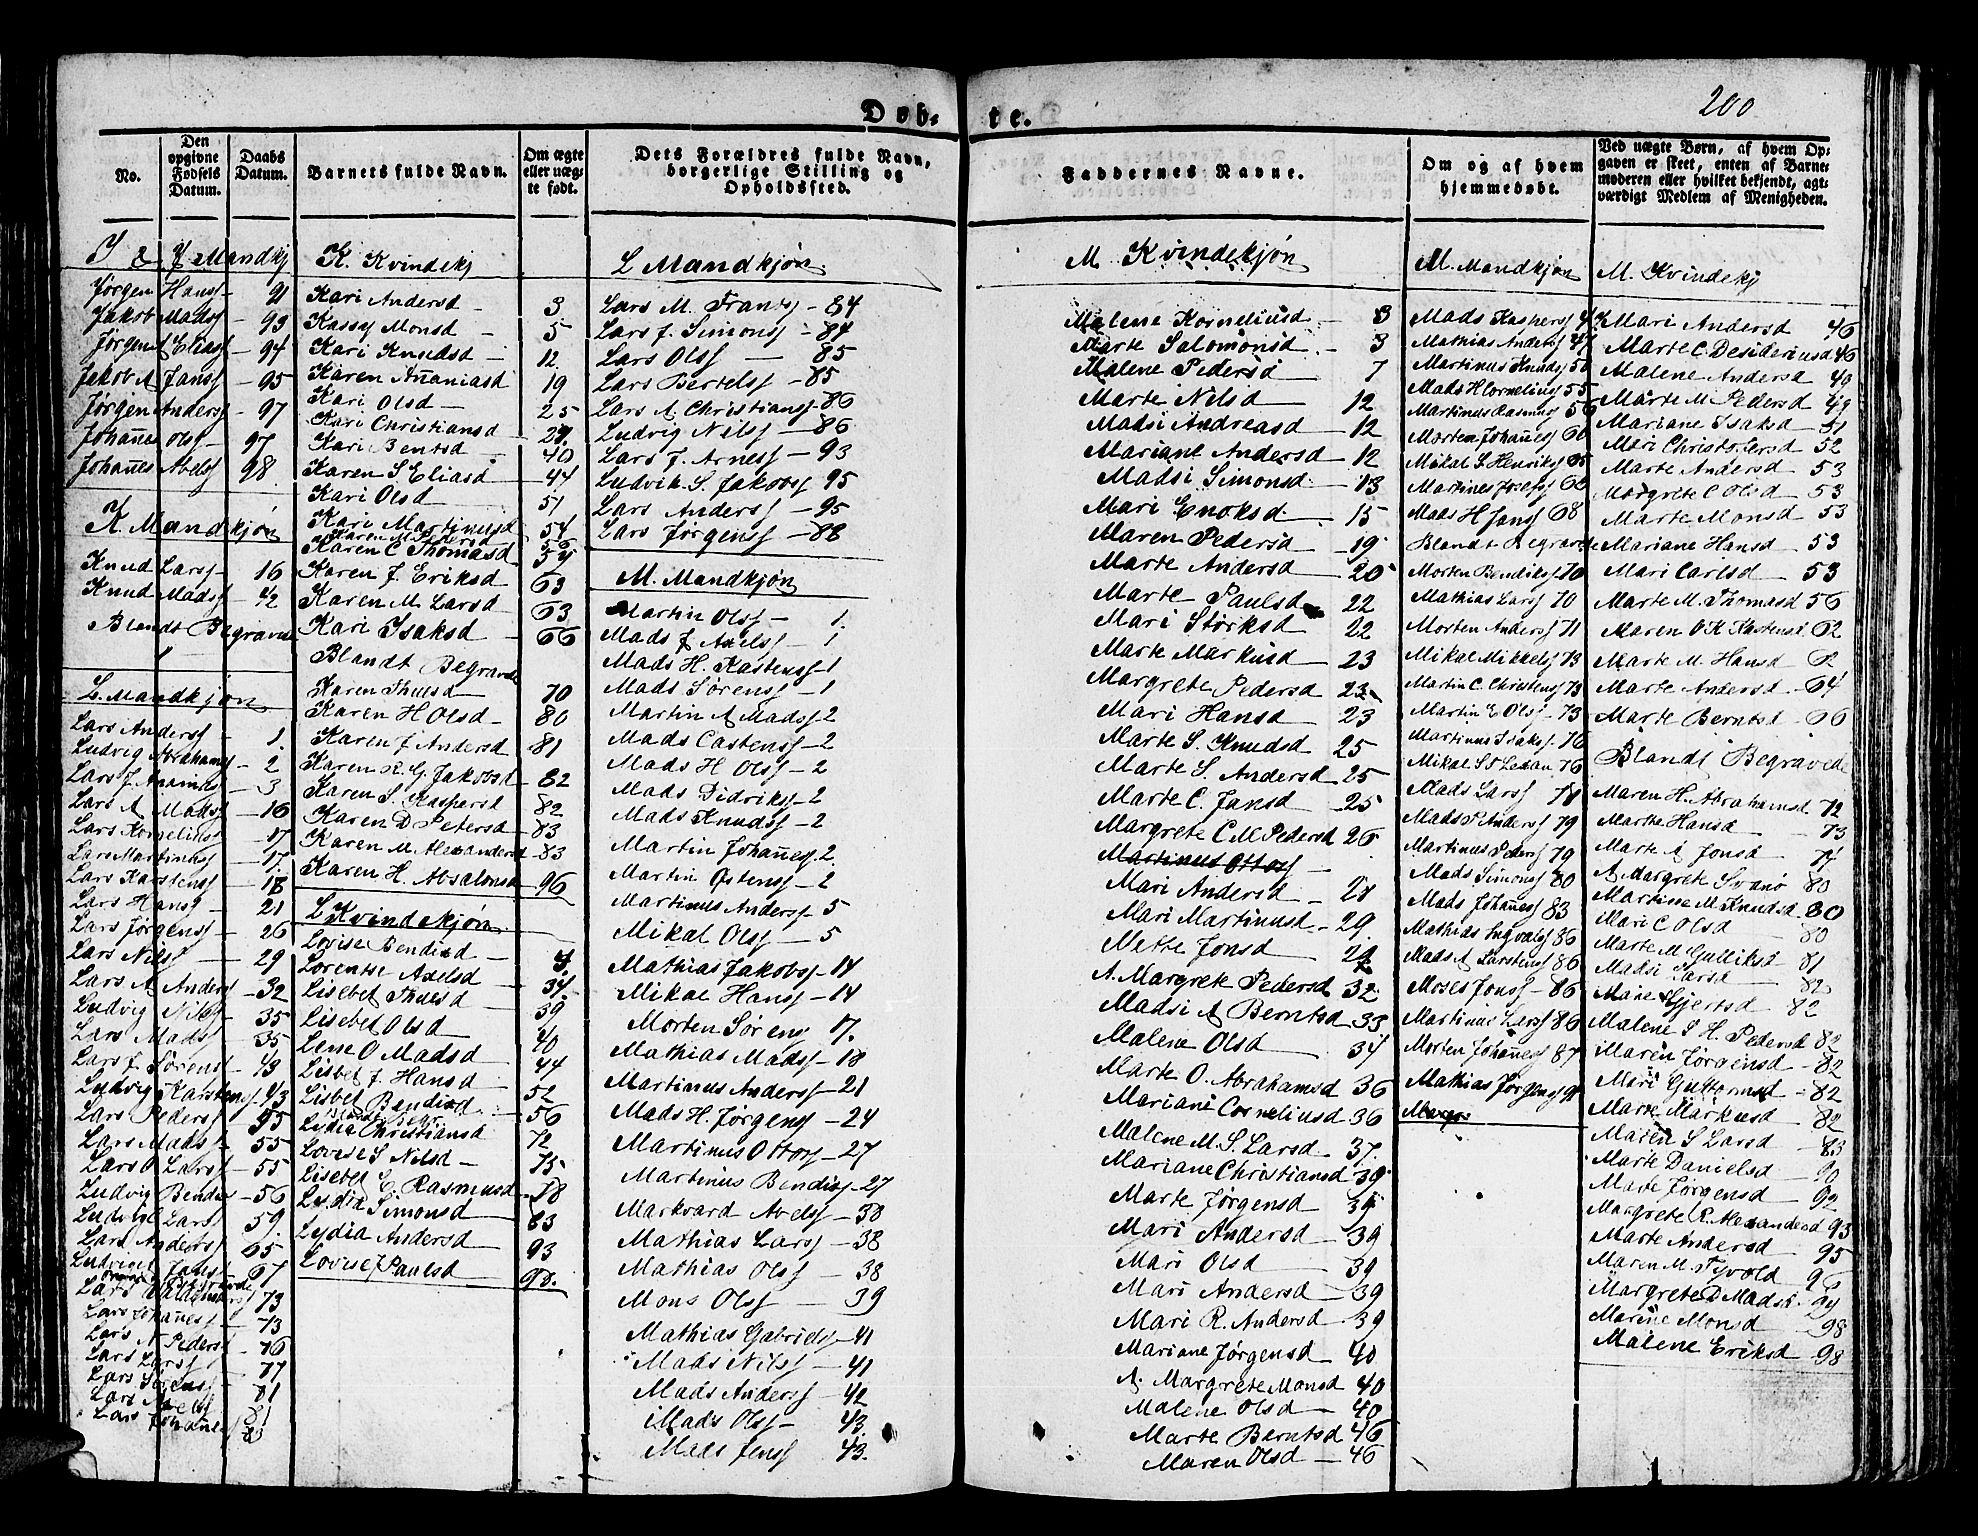 200
Døb-
te.
No.
Den opgivne Fødsels Datum.
Daabs Datum.
Barnets fulde Navn.
Om ægte eller uægte født.
Dets Forældres fulde Navn, borgerlige Stilling og Opholdsfted.
Faddernes Navne.
Om og af hvem hjemmedøbt.
Ved uægte Børn, af hvem Opgaven er skeet, enten af Barnemoderen eller hvilket bekjendt, agtværdigt Medlem af Menigheden.
I & J Mandkj
Jørgen Hansf - 91
Jakob Madsf - 93
Jørgen Eliasf - 94
Jakob A Jansf - 95
Jørgen Andersf - 97
Johañes Olsf - 97
Johañes Abelsf 98
K. Mandkjøn
Knud Larsf - 16
Knud Madsf - 42
Blandt Begravede
L. Mandkjøn
Lars Andersf - 1
Ludvig Abrahamsf - 2
Lars J. Ananiasf - 3
Lars A Madsf - 16
Lars Korneliusf - 17
Lars Martinusf - 17
Lars Karstensf - 18
Lars Hansf - 21
Lars Jørgensf - 26
Lars Nilsf - 29
Lars A Andersf - 32
Ludvig Nilsf - 35
Lars Madsf - 35
Lars J. Sørensf - 43
Ludvig Karstensf 43
Lars Pedersf - 55
Lars Madsf - 55
Lars O Larsf - 55
Ludvig Bendisf - 56
Ludvig Larsf 59
Lars Andersf 65
Ludvig Jansf 67
Lars 73
Lars Johañesf - 73
Lars N Pedersf - 76
Lars Larsf - 77
Lars Sørensf - 81
Lars Abelsf 81
Lars Johañesf
K. Kvindekj
Kari Andersd - 3
Kassy Monsd - 5
Kari Knudsd - 12
Karen Añaniasd 19
Kari Olsd - 25
Kari Christiansd - 27
Kari Bentsd - 40
Karen S Eliasd - 44
Kari Olsd - 51
Kari Martinusd 54
Karen M. Pedersd 56
Karen C Thomasd 57
Karen J. Eriksd - 63
Karen M. Larsd - 63
Kari Isaksd - 66
Blandt Begravede
Karen Thuesd - 70
Karen H Olsd - 80
Karen J Andersd - 81
Karen R. G. Jakobsd - 82
Karen S. Kaspersd 82
Karen D Petersd - 83
Karen M. Alexandersd - 83
Karen H. Absalonsd 96
L Kvindekjøn
Lovise Bendisd - 4
Lorentse Axelsd - 34
Lisebet Thuesd 39
Lisebet Olsd 40
Lene O Madsd 44
Lisbet J. Hansd 52
Lisbet Bendisd 56
Lydia Christiansd 72
Lovise S Nilsd - 75
Lisebet E. Rasmusd - 78
Lydia Simonsd 83
Lydia Andersd 93
Lovise J Paulsd
L Mandkjøn
Lars M. Frantsf - 84
Lars J. Simonsf - 84
Lars Olsf - 85
Lars Bertelsf - 85
Lars A. Christiansf - 86
Ludvig Nilsf - 86
Lars J. Arnesf - 93
Ludvik S. Jakobsf 95
Lars Andersf - 95
Lars Jørgensf - 88
M. Mandkjøn
Martin Olsf - 1
Mads J Axelsf - 1
Mads H. Kastensf - 1
Mads Sørensf - 1
Martin A Madsf - 2
Mads Castensf - 2
Mads H Olsf - 2
Mads Didriksf - 2
Mads Knudsf - 2
Martin Johañesf 2
Martin Ostensf - 2
Martinus Andersf - 5
Mikal Olsf - 5
Mathias Jakobsf - 14
Mikal Hansf - 14
Morten Sørens 17
Mathias Madsf - 18
Martinus Andersf - 21
Mads H. Jørgensf - 24
Martinus Ottosf - 27
Martinus Bendisf - 27
Markvard Abelsf - 38
Mathias Larsf - 38
Mathias Olsf - 38
Mons Olsf - 39
Mathias Gabrielsf - 41
Mads Nilsf - 41
Mads Andersf - 42
Mads Olsf - 43
Mads Jensf 43
M. Kvindekjøn
Malene Korneliusd - 3
Marte Salomonsd - 3
Malene Pedersd 7
Marte Nilsd - 12
Madsi Andreasd - 12
Mariane Andersd - 12
Madsi Simonsd - 13
Mari Enoksd - 15
Maren Pedersd - 19
Marte Andersd - 20
Marte Paulsd 22
Mari Størksd - 22
Marte Markusd - 23
Margrete Pedersd 23
Mari Hansd - 23
Marte S. Knudsd 25
Marte S. Andersd - 25
Marte C. Jansd - 25
Margrete C. M Pedersd - 26
Martinus Ottosf -
Mari Andersd - 28
Mari Martinusd - 29
Mette Jonsd 29
A. Margrete Pedersd 32
Madsi A Berntsd - 33
Malene Olsd - 34
Marte O. Abrahamsd 36
Mariane Corneliusd - 36
Malene M. S. Larsd - 37
Mariane Christiansd 39
Marte Jørgensd - 39
Mari Andersd - 39
Mari Olsd 39
Mari Andersd - 39
Mari R. Andersd - 39
Mariane Jørgensd - 40
A. Margrete Monsd 40
Malene Olsd - 40
Marte Berntsd - 46
Maren Olsd - 46
M. Mandkjøn
Mads Kaspersf
Mathias Andersf 47
Martinus Knudsf 50
Mads H Corneliusf 55
Martinus Rasmusf 56
Morten Johañesf 60
Mikal S Henriksf 65
Martines Josefsf 68
Mads H Jansf 68
Blandt Begravede
Morten Bendiksf 70
Mathias Larsf 70
Morten Andersf 71
Mikal Mikkelsf 73
Martin C. Christensf 73
Martin E Olsf - 73
Martinus Isaksf - 76
Mads Larsf 78
Mads P Andersf 79
Martinus Pedersf 79
Mads Simonsf 80
Mads Johañesf 83
Mathias Ingvalsf 86
Mads A Larstensf 86
Moses Jonsf - 86
Martinus Larsf 86
Morten Johañesf 87
Mathias Jørgensf 91
M. Kvindekj
Mari Andersd 46
Marte C. Desideriusd 46
Malene Andersd 49
Marte M. Pedersd 49
Mariane Isaksd 51
Mari Christofersd 52
Marte Andersd 53
Margrete C Olsd 53
Marte Monsd 53
Mariane Hansd 53
Mari Carlsd - 53
Marte M. Thomasd 56
Maren O K Kastensd 62
Marte M. Hansd - 62
Marte Andersd - 64
Marte Berntsd - 66
Blandt Begravede
Maren H. Abrahamsd 72
Marthe Hansd - 73
Marte A Jonsd - 74
A. Margrete Svanø 80
Martine M. Knudsd 80
Mari C Olsd - 80
Marte M Gulliksd 81
Madsi Larsd - 82
Marie Gjertsd - 82
Malene S H. Pedersd 82
Maren Jørgensd - 82
Mari Guttormsd - 82
Marte Markusd 82
Maren S Larsd - 83
Marte Danielsd 90
Marte Jørgensd - 92
Margrete R. Alexandersd 93
Marte Andersd 95
Maren M. Tyvold 96
Margrete D Madsd
Marine Monsd - 98
Malene Eriksd - 98